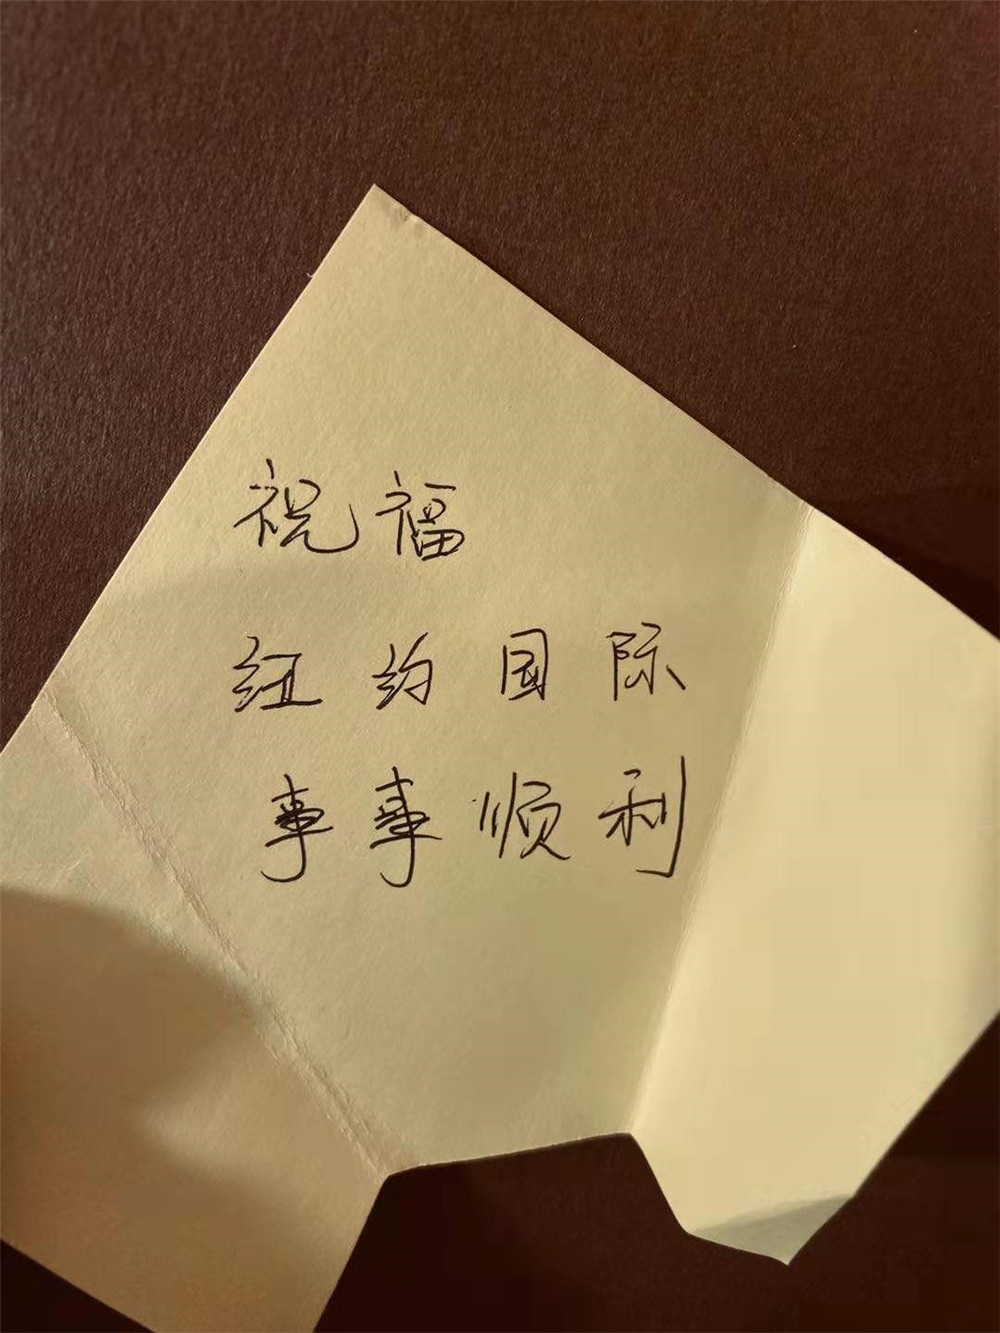 祝福
纽约国际
事事顺利